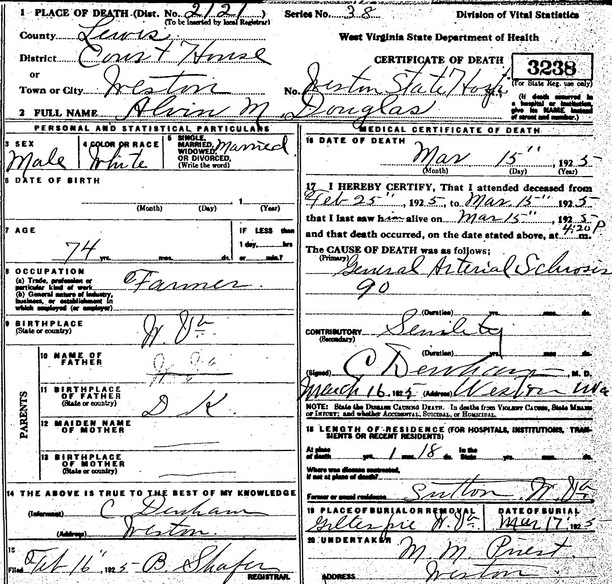 1 PLACE OF DEATH (Dist. No. 2121 Series No. 38 Division of Vital Statistics
(To be inserted by local Registrar)
County Lewis West Virginia State Department of Health
District Court House CERTIFICATE OF DEATH 3238
or (For State Reg. use only)
Town or City Weston No. Weston State Hosp. (If death occurred in a hospital or institution, give its NAME instead of street and number.)
2 FULL NAME Alvin M. Douglas
PERSONAL AND STATISTICAL PARTICULARS
3 SEX Male
4 COLOR OR RACE White
5 SINGLE, MARRIED, WIDOWED, OR DIVORCED, (Write the word) Married
6 DATE OF BIRTH
(Month) (Day) 1 (Year)
7 AGE IF LESS than
74 yrs. mos. ds. 1 day, hrs
or min.?
8 OCCUPATION
(a) Trade, profession or particular kind of work Farmer
(b) General nature of industry, business, or establishment in which employed (or employer)
9 BIRTHPLACE W. Va
(State or country)
PARENTS
10 NAME OF FATHER
11 BIRTHPLACE OF FATHER D K.
(State or country)
12 MAIDEN NAME OF MOTHER
13 BIRTHPLACE OF MOTHER
(State or country)
14 THE ABOVE IS TRUE TO THE BEST OF MY KNOWLEDGE
(Informant) C Denham
(Address) Weston
15
Filed Feb 16" 1925 B. Shafer
REGISTRAR.
MEDICAL CERTIFICATE OF DEATH
16 DATE OF DEATH
Mar 15" 1925
(Month) (Day) (Year)
17 I HEREBY CERTIFY, That I attended deceased from
Feb 25" 1925, to Mar 15" 1925
that I last saw him alive on Mar 15" 1925
and that death occurred, on the date stated above, at 4:20 P m.
The CAUSE OF DEATH was as follows;
(Primary) General Arterial Schrosis
90
(Duration) yrs. mos. ds.
CONTRIBUTORY Senility
(Secondary)
(Duration) yrs. mos. ds.
(Signed) C Denham, M. D.
March 16, 1925 (Address) Weston W Va
NOTE: State the DISEASE CAUSING DEATH. In deaths from VIOLENT CAUSES, State MEANS OF INJURY; and whether ACCIDENTAL, SUICIDAL, or HOMICIDAL.
18 LENGTH OF RESIDENCE (FOR HOSPITALS, INSTITUTIONS, TRANSIENTS OR RECENT RESIDENTS)
At place of death yrs. 1 mos. 18 ds. In the State yrs. mos. ds.
Where was disease contracted, if not at place of death?
Former or usual residence Sutton W. Va
19 PLACE OF BURIAL OR REMOVAL DATE OF BURIAL
Gillespie W. Va Mar 17, 1925
20 UNDERTAKER M. M. Priest
ADDRESS Weston